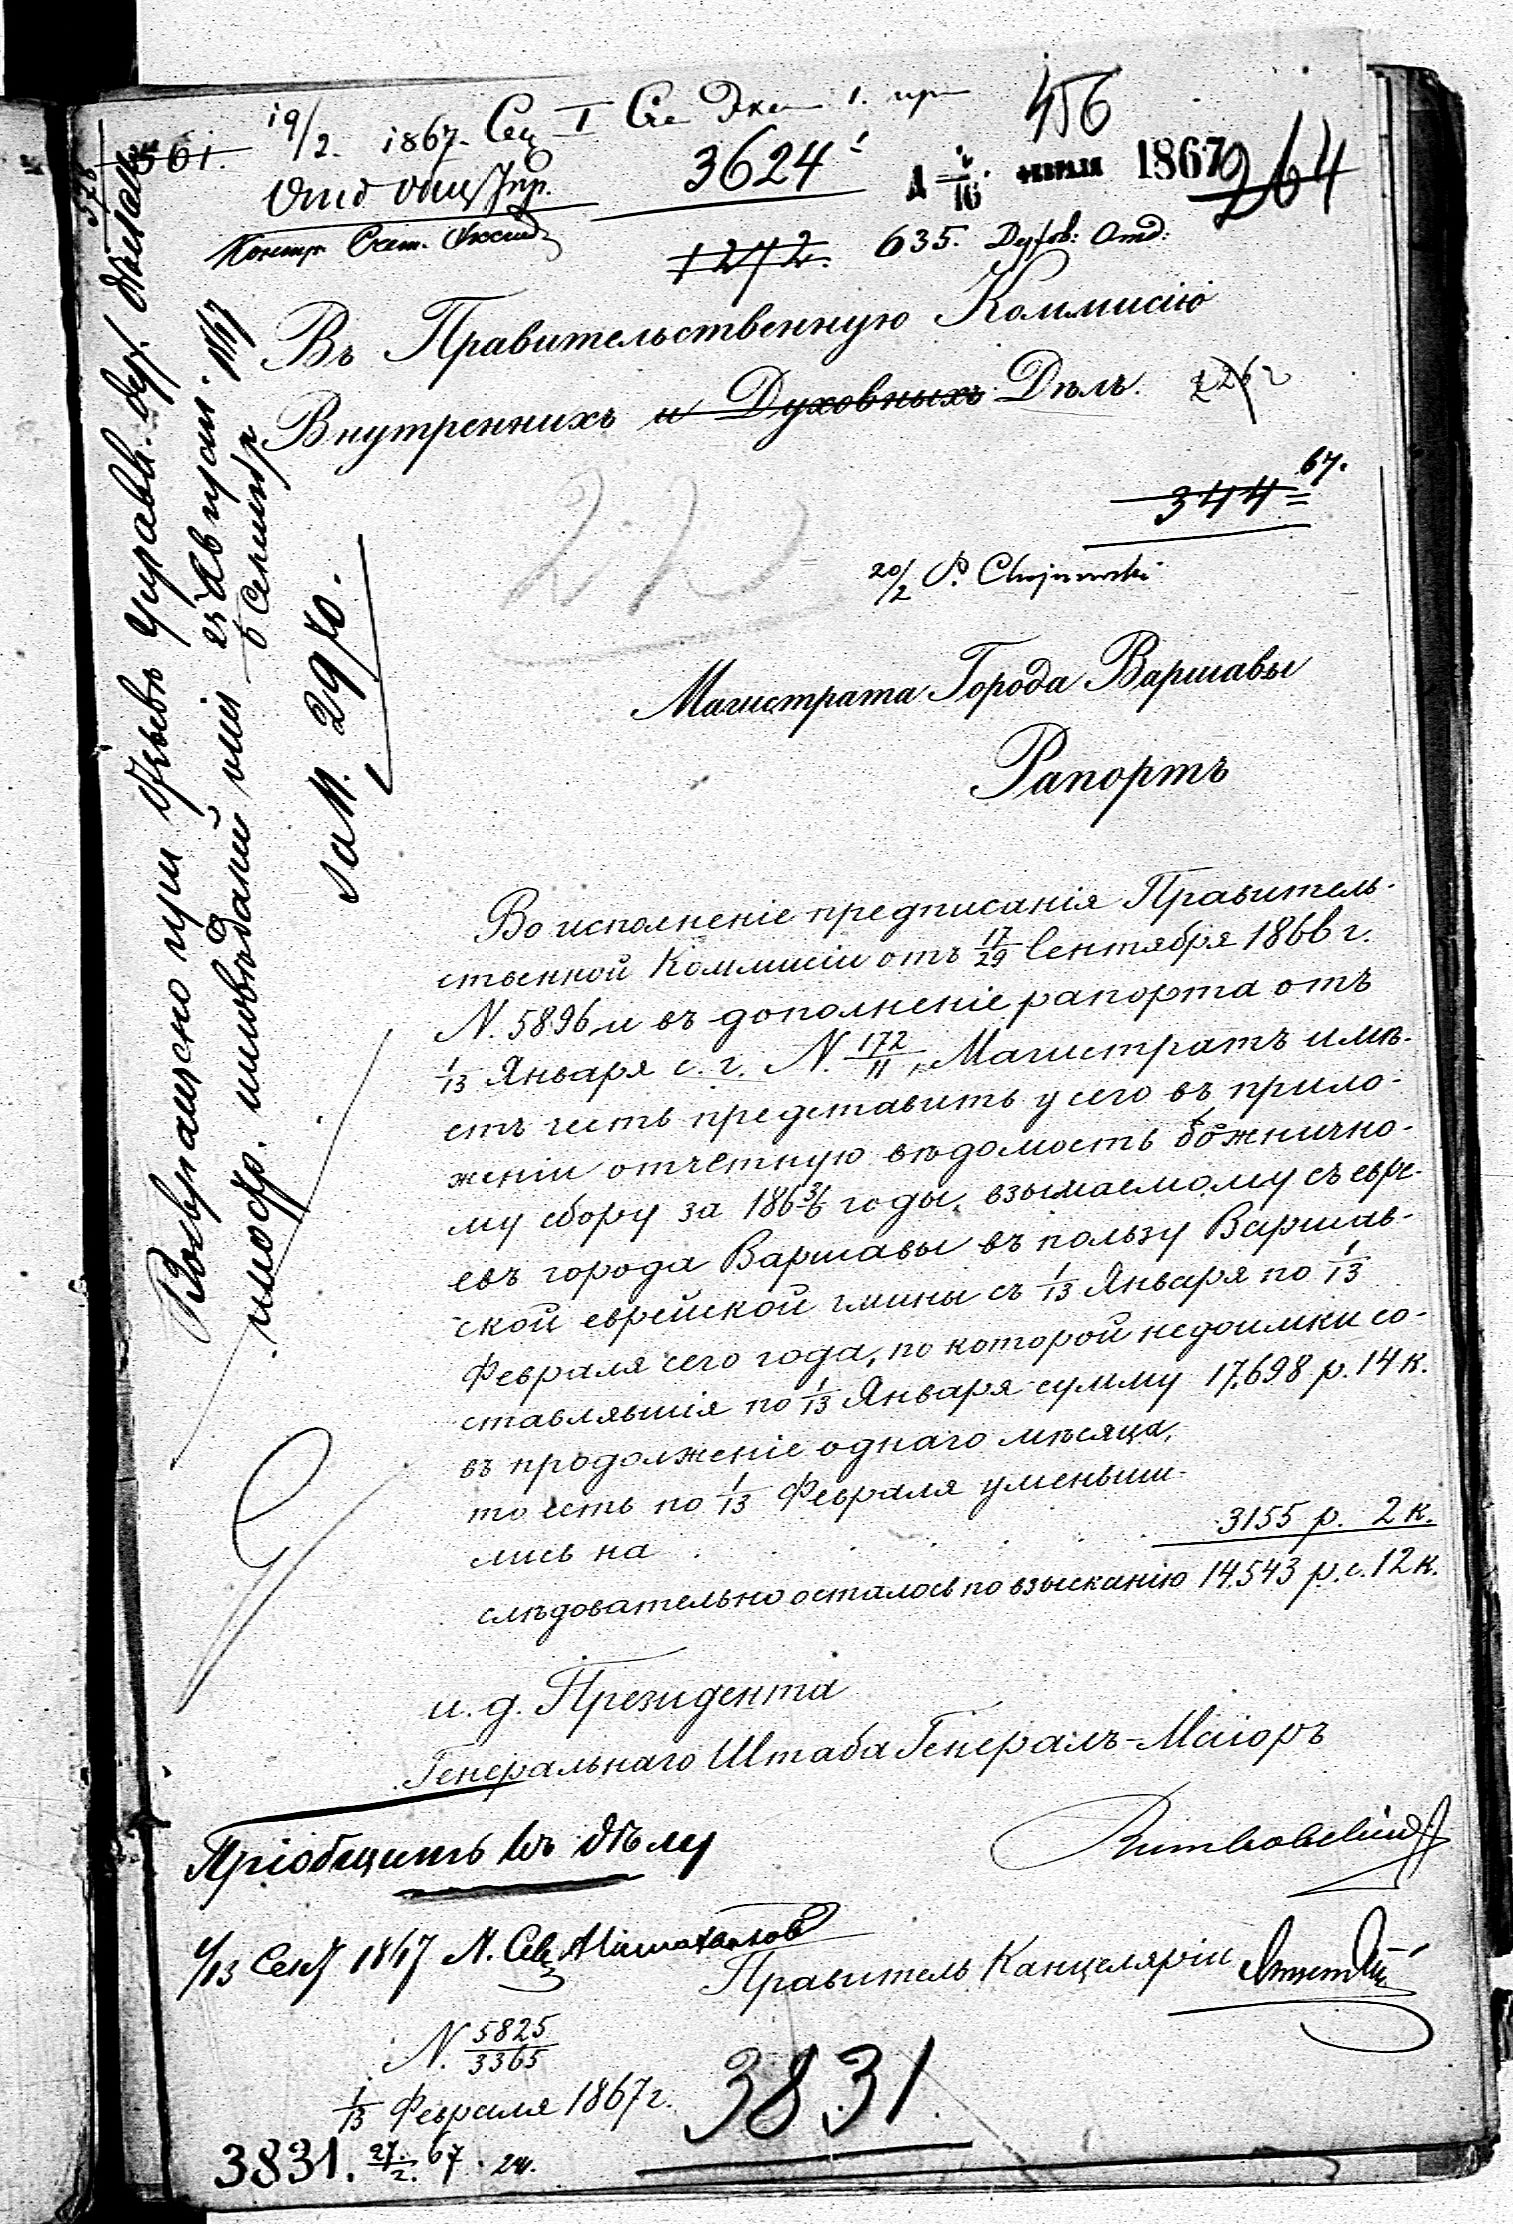 19/2. 1867. Сец I
456
361.
3624
4/16 ФЕВРАЛЯ 1867
264
1272. 635. Духов: Отд:
Въ Правительственную Коммисію
Внутреннихъ и Духовныхъ Дѣлъ.
344 67.
22
20/2 P. Chojnowski
Магистрата Города Варшавы
Рапортъ
Во исполненіе предписанія Правитель-
ственной Коммисіи отъ 17/29 Сентября 1866 г.
N. 5896 и въ дополненіе рапорта отъ
1/13 Января с. г. N. 172/11, Магистратъ имѣ-
етъ честь представить у сего въ прило-
женіи отчетную вѣдомость божнично-
му сбору за 186 3/6 годы, взымаемому съ евре-
евъ города Варшавы въ пользу Варшав-
ской еврейской гмины съ 1/13 Января по 1/13
Февраля сего года, по которой недоимки со-
ставлявшія по 1/13 Января сумму 17.698 р. 14 к.
въ продолженіе однаго мѣсяца,
то есть по 1/13 Февраля уменьши-
лись на . . . . . . 3155 р. 2 к.
слѣдовательно осталось по взысканію 14.543 р. с. 12 к.
и. д. Президента
Генеральнаго Штаба Генералъ-Маіоръ
Витковскій
Пріобщить къ дѣлу
1867
Правитель Канцеляріи
N. 5825/3365
1/13 Февраля 1867 г.
3831
3831. 27/2. 67.
Возвращено при
за N. 2970.